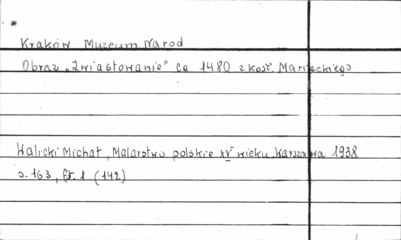 Kraków Muzeum Narod
Obraz „Zwiastowanie" ca 1480 z kość. Mariackiego
Walicki Michał, Malarstwo polskie XV wieku Warszawa 1938
s. 163, ft. 1 (142)